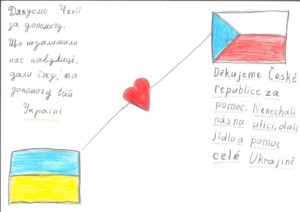 Дякуємо Чехії
за допомогу.
Що не залишили
нас на вулиці,
дали їжу, та
допомогу всій
Україні
Děkujeme České
republice za
pomoc. Nenechali
nás na ulici, dali
jídlo a pomoc
celé Ukrajině